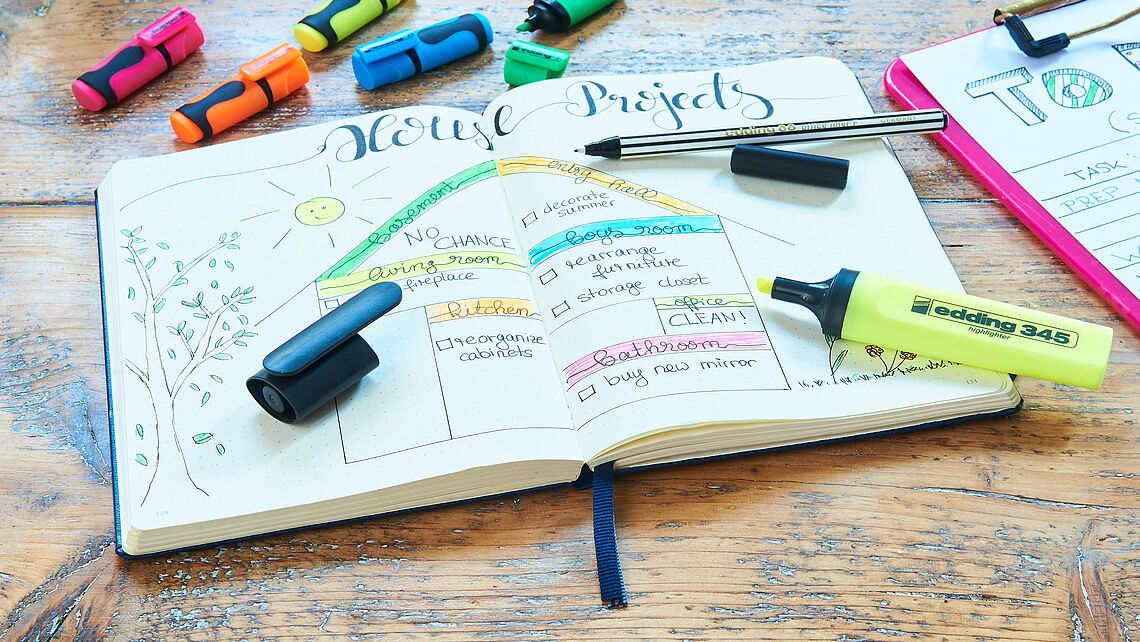 House Projects
basement
NO
CHANCE
living room
fireplace
kitchen
reorganize
cabinets
130
entry hall
decorate
summer
boys room
rearrange
furniture
storage closet
office
CLEAN!
bathroom
buy new mirror
131
edding 88 office liner F
GERMANY
edding 345
highlighter
edding
TO
TASK:
PREP